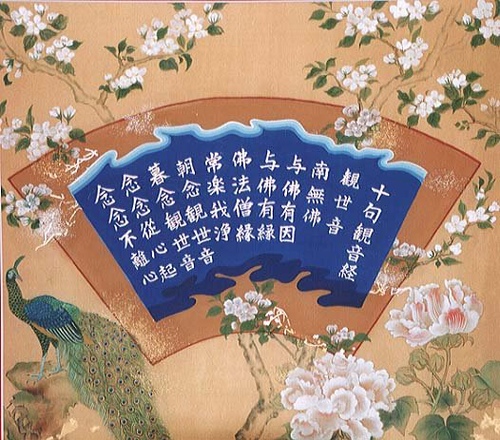 十句觀音経
觀世音
南無佛
与佛有因
与佛有縁
佛法僧縁
常楽我浄
朝念觀世音
暮念觀世音
念念從心起
念念不離心